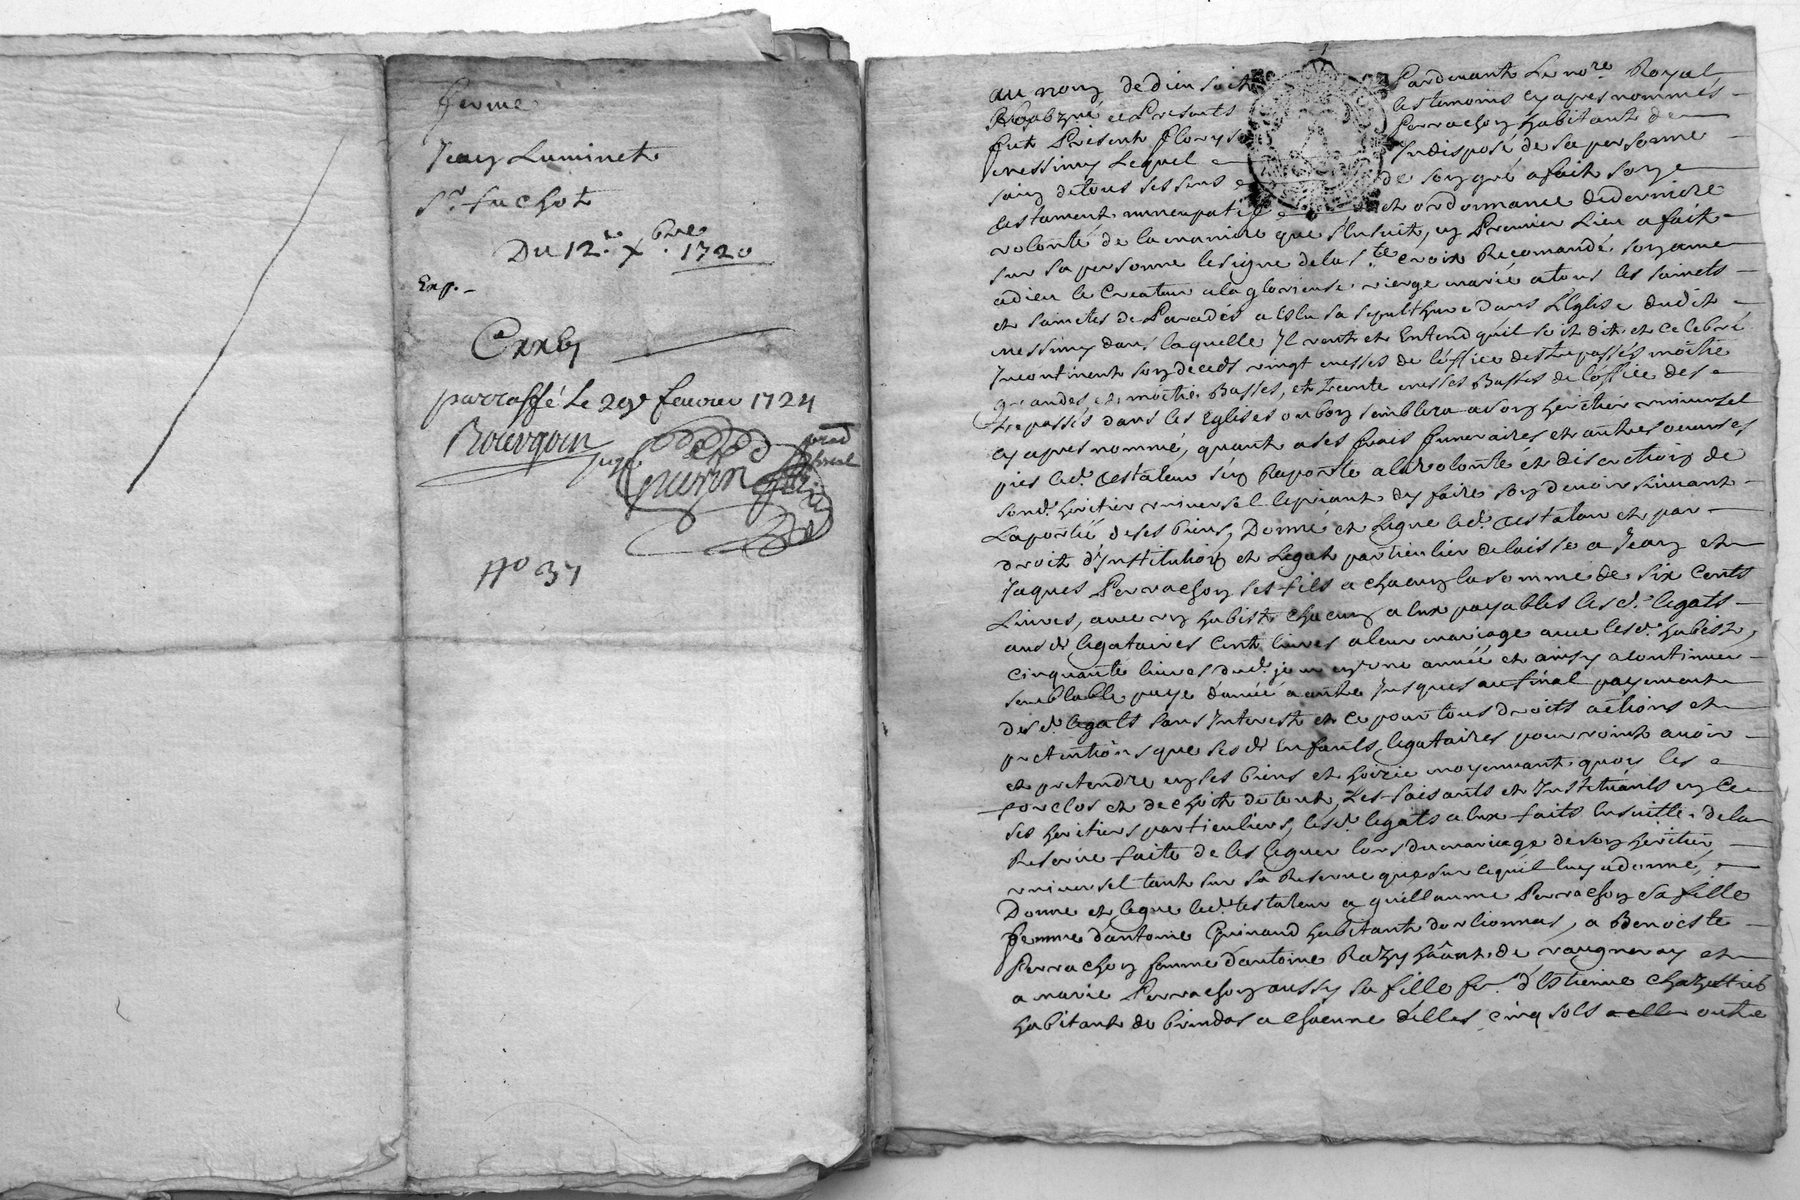 ferme
Jean Luminet
Sr. fuchot
Du 12e. Xbre. 1720
Exp.
parraffé Le 29e feurier 1724
Bourgoin juge Guerin
No 37
au nom de dieu soit Pardeuant Le nore. Royal
et Presents les temoins cy apres nommés
fut Present fleury Perrachon habitant de
messimy Lequel Indisposé de sa personne
sain de tous ses sens de son gré a fait son
testament nuncupatif et ordonnance de derniere
volonté de la maniere que s'ensuit, en Premier Lieu a fait
sur sa personne le signe de la ste. croix Recomandé son ame
a dieu le Createur a la glorieuse vierge marie a tous les saincts
et sainctes de Paradis a Eslu sa sepulthure dans L'Eglise dudit
messimy dans laquelle Il veut et Entend qu'il soit dit et celebré
Incontinent son deceds vingt messes de l'office des trepassés moitié
grandes et moitié Basses, et trente messes Basses de l'office des
trepassés dans les Eglises ou bon semblera a son heritier vniversel
cy apres nommé, quant a ses frais funeraires et autres oeuures
pies led. testateur s'en Raporte a la volonté et discretion de
sond. heritier vniversel le priant d'y faire son deuoir suiuant
La portée de ses biens, Donne et Legue led. testateur et par
droit d'Institution et Legat particulier delaisse a Jean et
Jaques Perrachon ses fils a chacun la somme de six Cents
Liures, auec un habist chacun a eux payables lesd. legats
ausd. legataires Cent liures a leur mariage auec lesd. habists,
cinquante liures dud. jour en une année et ainsy a continuer
semblable paye d'année a autre Jusques au final payement
desd. legats sans Interest et ce pour tous droits actions et
pretentions que sesd. Enfants legataires pourroint auoir
et pretendre en ses biens et hoirie moyennant quoy les
forclos et dechoit de tout, Les faisants et Instituants en Ce
ses heritiers particuliers, lesd. legats a eux faits Ensuitte de la
Reserue faite de les leguer lors du mariage de son heritier
vniversel tant sur sa Reserue que sur ce qu'il luy a donné,
Donne et legue led. testateur a guillaume Perrachon sa fille
femme d'antoine Guinand habitant dorlionnas, a Benoiste
Perrachon femme d'antoine Razy hâant. de vaugneray et
a marie Perrachon aussy sa fille fe. d'Estienne
habitant de brindas a chacune d'elles cinq sols a elles outre